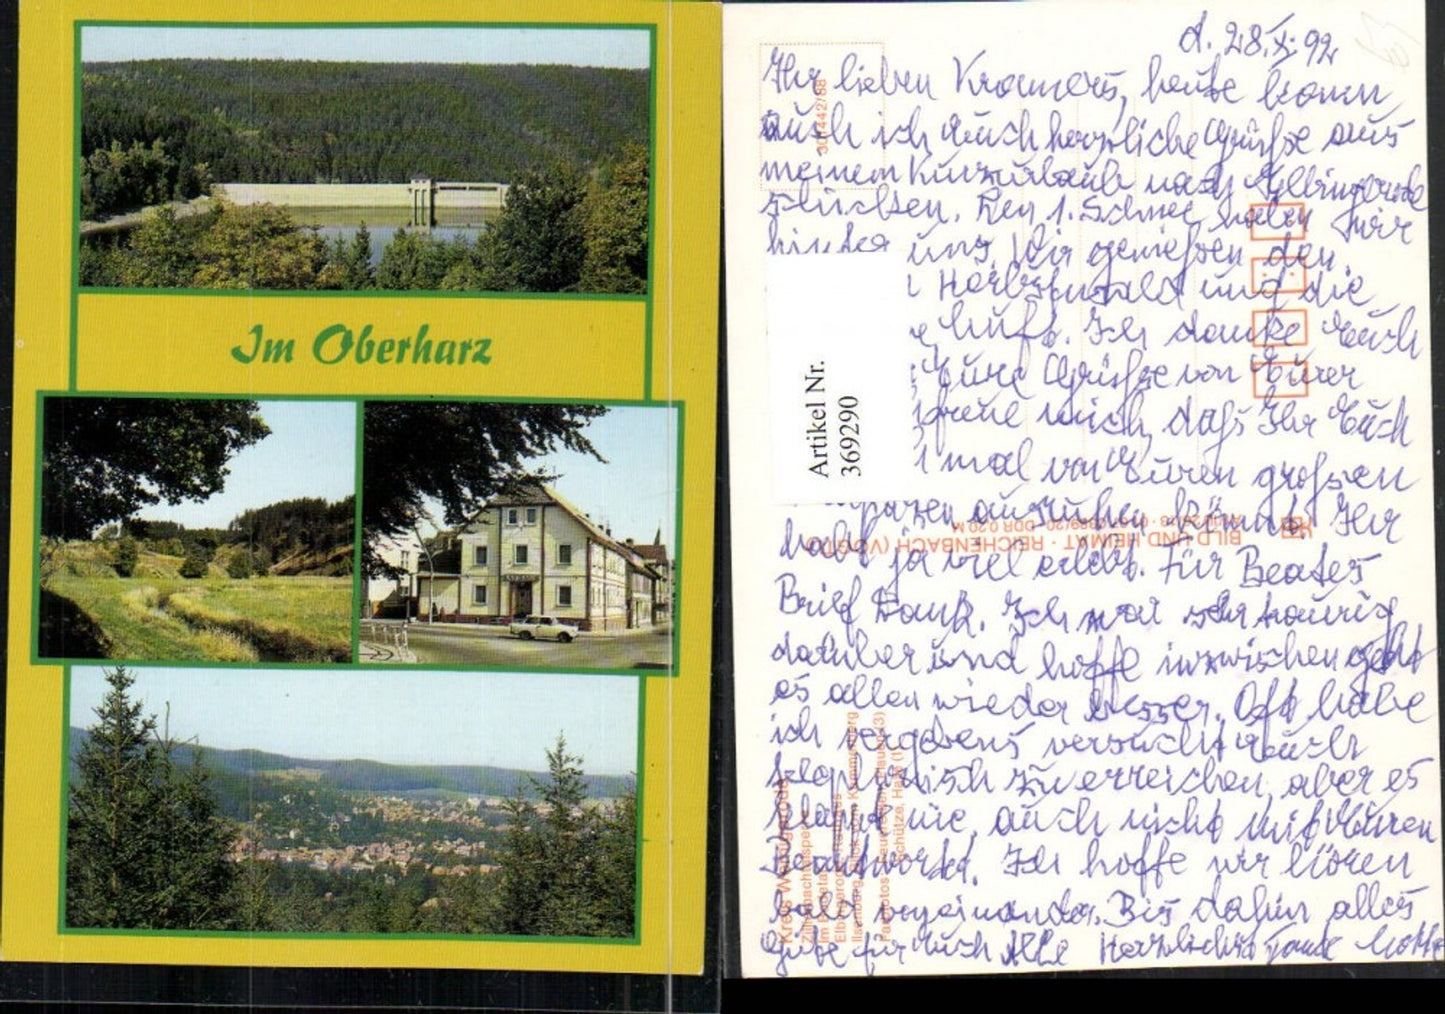 Im Oberharz
d. 28.X.92
Ihr lieben Kramers, heute kann
auch ich Euch herzliche Grüße aus
meinem Kurzurlaub nach Elbingerode
schicken. Den 1. Schnee haben wir
hinter uns. Wir genießen den
Herbstwald und die
Luft. Ich danke Euch
Eure Grüße von Eurer
freue mich, daß Ihr Euch
mal von Euren großen
ausruhen könnt. Ihr
habt ja viel erlebt. Für Beates
Brief Dank. Ich war sehr traurig
darüber und hoffe inzwischen geht
es allen wieder besser. Oft habe
ich vergebens versucht Euch
telephonisch zu erreichen, aber es
klappt nie, auch nicht mit Euren
Ich hoffe wir hören
bald voneinander. Bis dahin alles
Gute für Euch Alle Herzlichst Tante
Artikel Nr.
369290
BILD UND HEIMAT · REICHENBACH (VOGTL)
DDR 0,20 M
Kreis Wernigerode